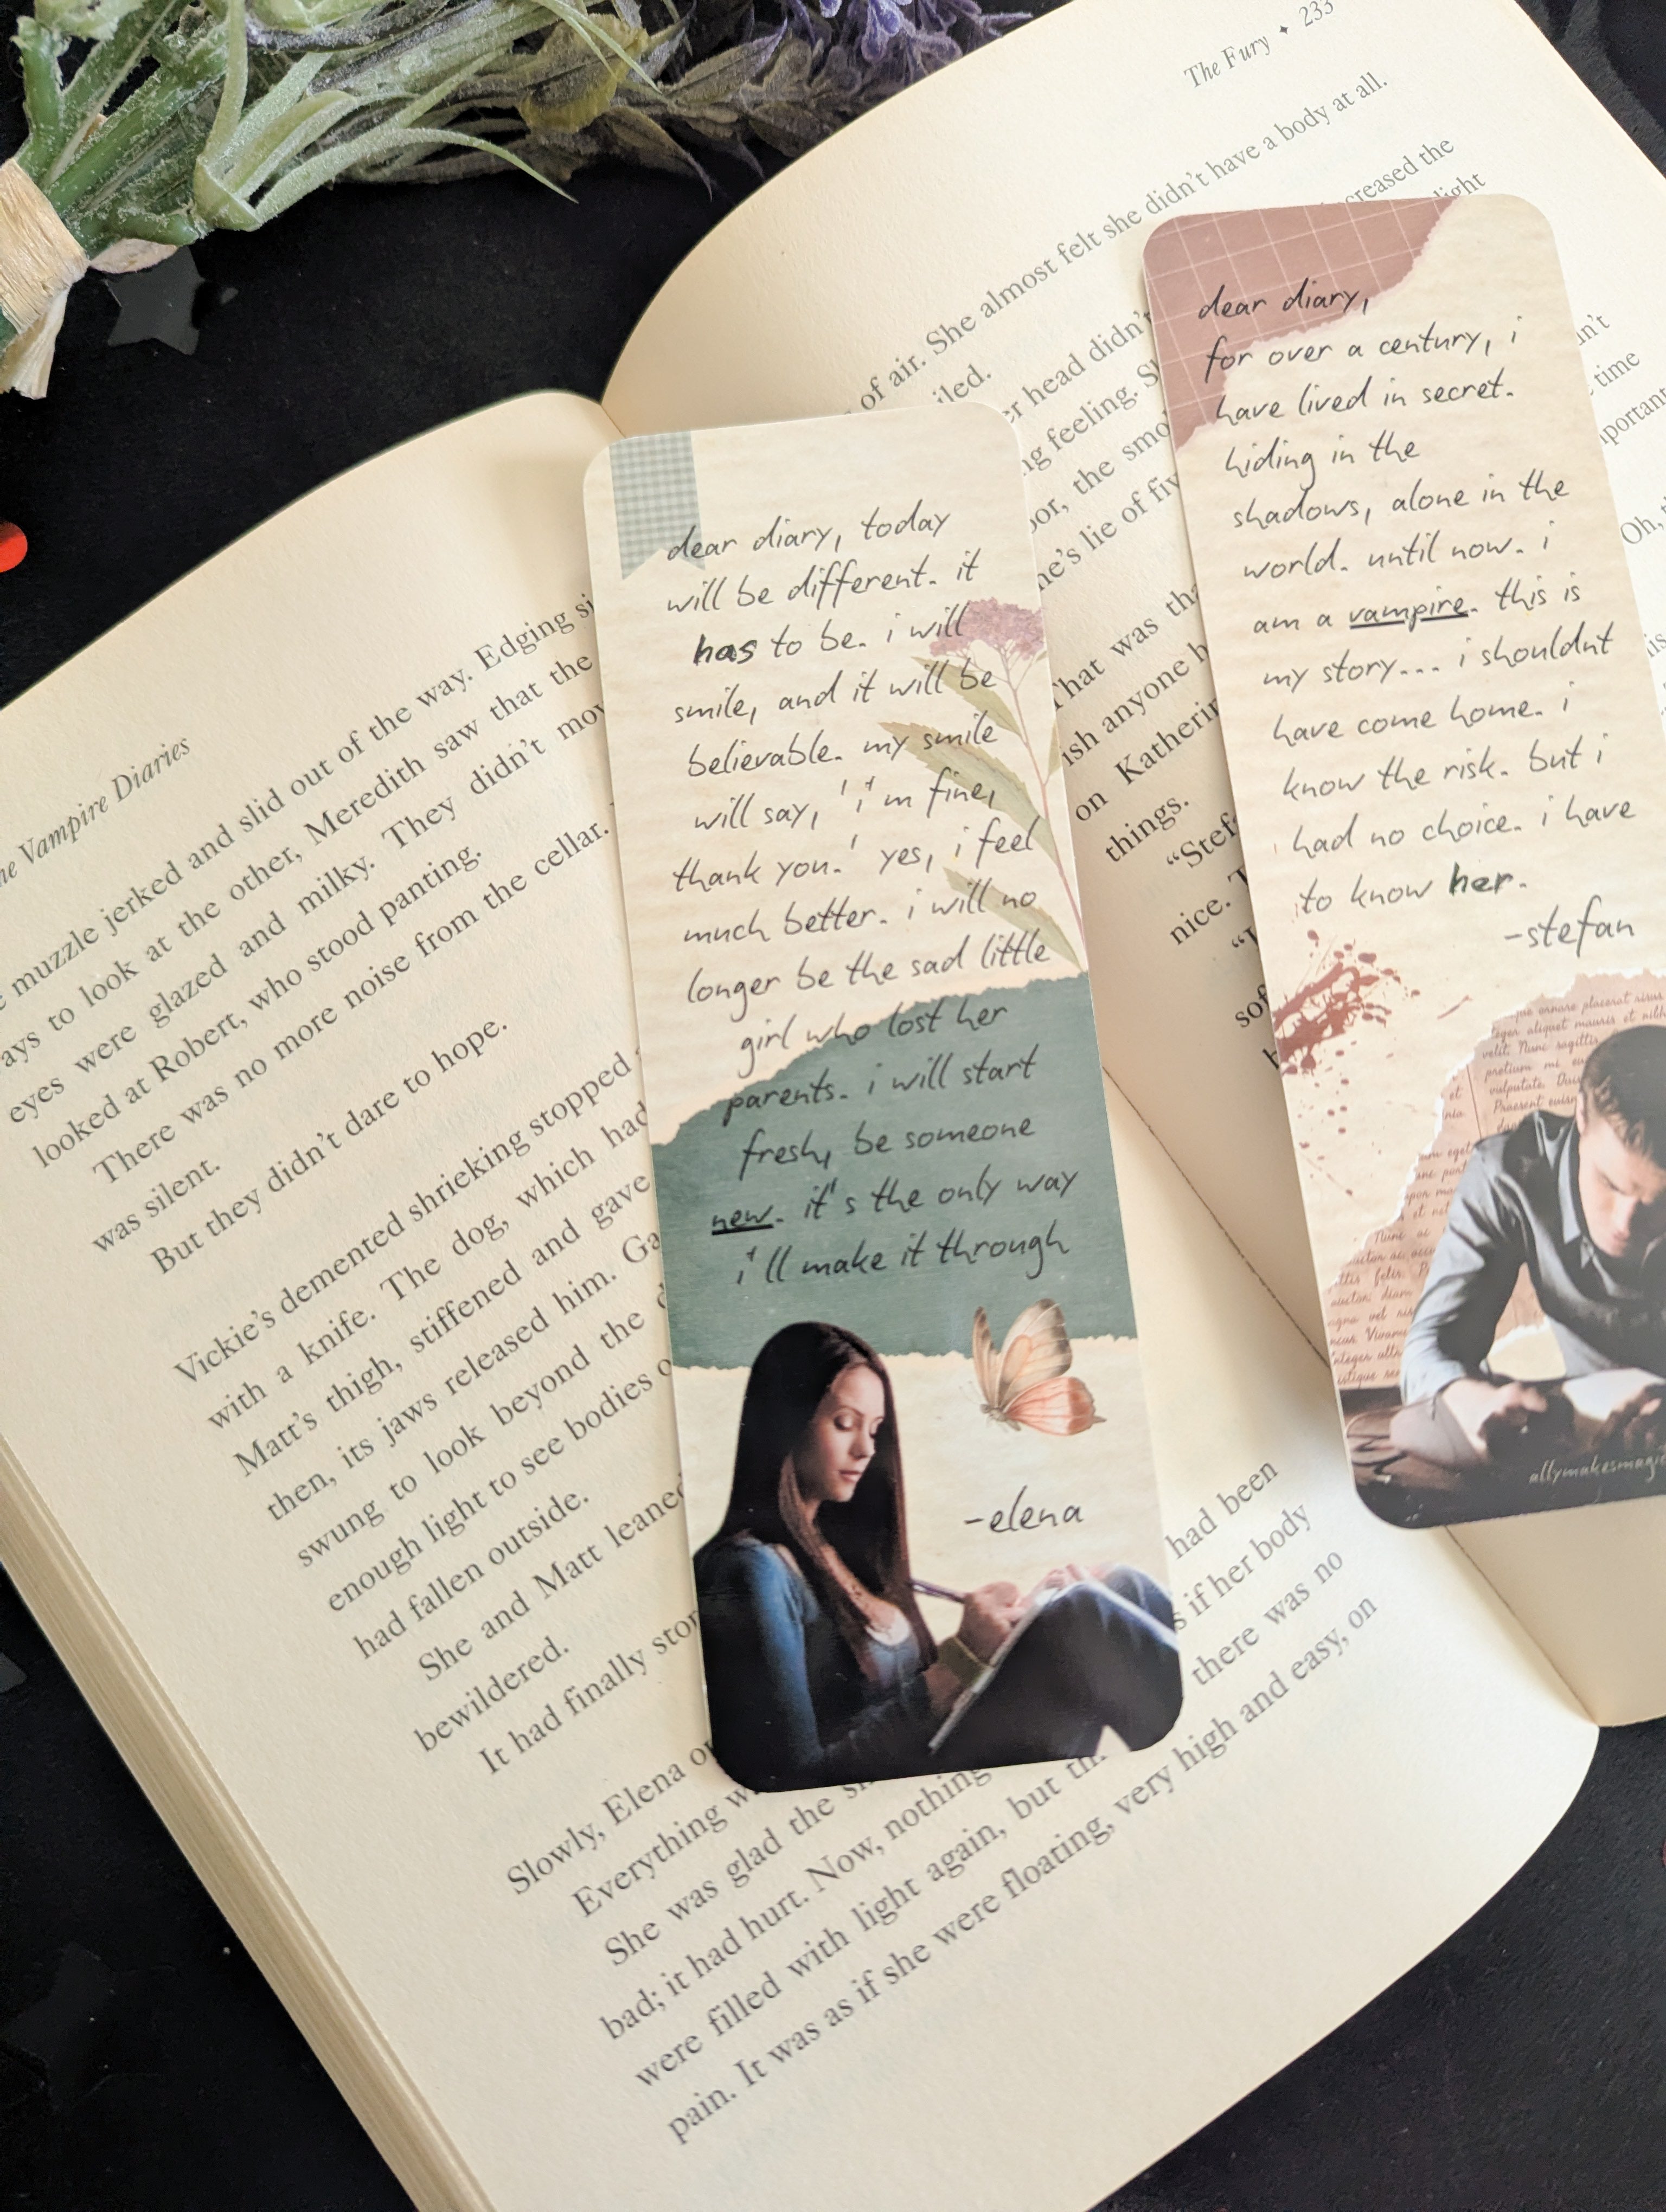 The Vampire Diaries
muzzle jerked and slid out of the way. Edging
to look at the other, Meredith saw that the
eyes were glazed and milky. They didn't
looked at Robert, who stood panting.
There was no more noise from the cellar.
was silent.
But they didn't dare to hope.
Vickie's demented shrieking stopped
with a knife. The dog, which had
Matt's thigh, stiffened and gave
then, its jaws released him.
swung to look beyond the
enough light to see bodies
had fallen outside.
She and Matt leaned
bewildered.
It had finally
Slowly, Elena
Everything
She was glad the
bad; it had hurt. Now, nothing
were filled with light again, but
pain. It was as if she were floating, very high and easy, on
had been
if her body
there was no
The Fury ✦ 233
of air. She almost felt she didn't have a body at all.
creased the
light
head didn't
feeling.
the
lie of
That was
ish anyone
on
things.
nice.
time
Oh,
dear diary, today
will be different. it
has to be. i will
smile, and it will be
believable. my smile
will say, 'i'm fine,
thank you.' yes, i feel
much better. i will no
longer be the sad little
girl who lost her
parents. i will start
fresh, be someone
new. it's the only way
i'll make it through
-elena
dear diary,
for over a century, i
have lived in secret.
hiding in the
shadows, alone in the
world. until now. i
am a vampire. this is
my story... i shouldnt
have come home. i
know the risk. but i
had no choice. i have
to know her.
-stefan
ornare placerat risus
aliquet mauris et
velit. Nunc sagittis
pretium mi
vulputate.
Praesent
allymakesmagic